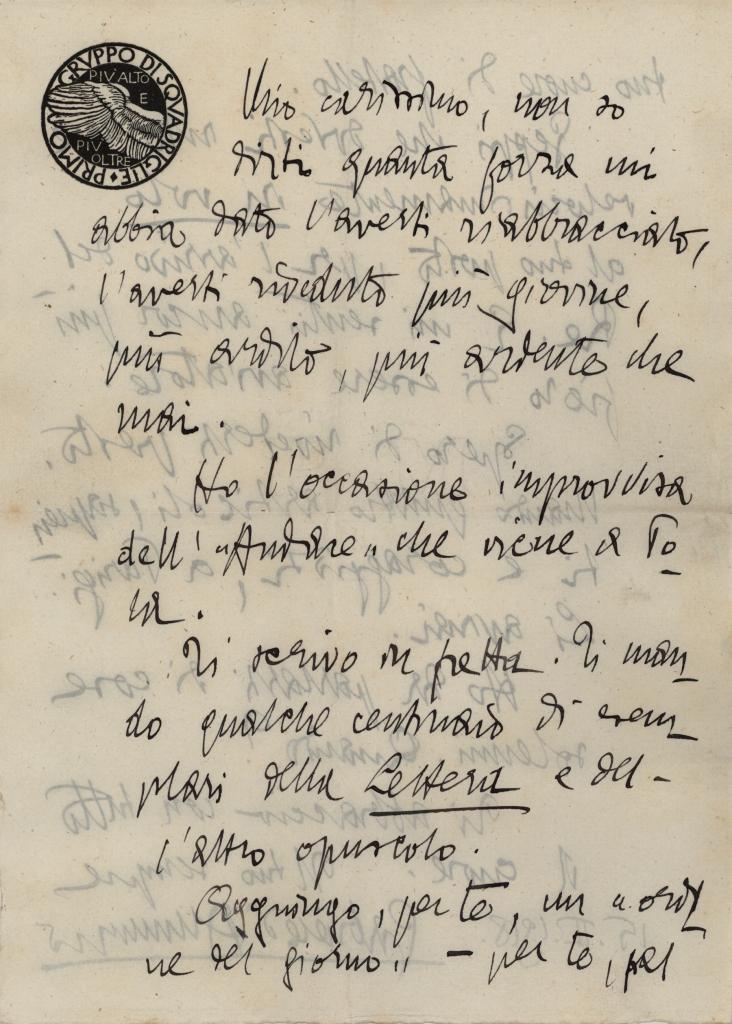 PRIMO GRVPPO DI SQVADRIGLIE
PIV' ALTO
E
PIV'
OLTRE
Mio carissimo, non so
dirti quanta forza mi
abbia dato l'averti riabbracciato,
l'averti riveduto più giovine,
più ardito, più ardente che
mai.
Ho l'occasione improvvisa
dell' "Andare" che viene a Po-
la.
Ti scrivo in fretta. Ti man-
do qualche centinaio di esem-
plari della Lettera e del-
l'altro opuscolo.
Aggiungo, per te, un "ordi-
ne del giorno" – per te, pel